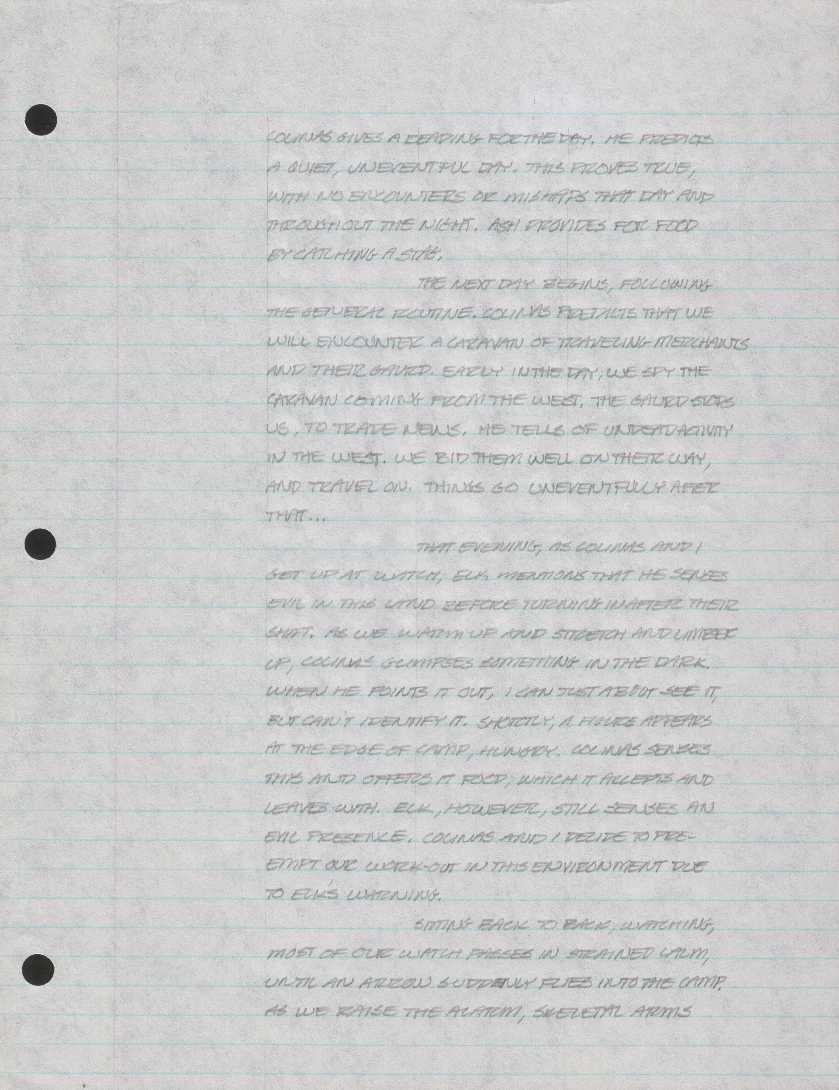 COLINAS GIVES A READING FOR THE DAY. HE PREDICTS
A QUIET, UNEVENTFUL DAY. THIS PROVES TRUE,
WITH NO ENCOUNTERS OR MISHAPS THAT DAY AND
THROUGHOUT THE NIGHT. ASH PROVIDES FOR FOOD
BY CATCHING A STAG.
THE NEXT DAY BEGINS, FOLLOWING
THE GENERAL ROUTINE. COLINAS PREDICTS THAT WE
WILL ENCOUNTER A CARAVAN OF TRAVELING MERCHANTS
AND THEIR GAURD. EARLY IN THE DAY, WE SPY THE
CARAVAN COMING FROM THE WEST. THE GAURD STOPS
US, TO TRADE NEWS. HE TELLS OF UNDEAD ACTIVITY
IN THE WEST. WE BID THEM WELL ON THEIR WAY,
AND TRAVEL ON. THINGS GO UNEVENTFULLY AFTER
THAT...
THAT EVENING, AS COLINAS AND I
GET UP AT WATCH, ELK MENTIONS THAT HE SENSES
EVIL IN THIS LAND BEFORE TURNING IN AFTER THEIR
SHIFT. AS WE WARM UP AND STRETCH AND LIMBER
UP, COLINAS GLIMPSES SOMETHING IN THE DARK.
WHEN HE POINTS IT OUT, I CAN JUST ABOUT SEE IT,
BUT CAN'T IDENTIFY IT. SHORTLY, A FIGURE APPEARS
AT THE EDGE OF CAMP, HUNGRY. COLINAS SENSES
THIS AND OFFERS IT FOOD, WHICH IT ACCEPTS AND
LEAVES WITH. ELK, HOWEVER, STILL SENSES AN
EVIL PRESENCE. COLINAS AND I DECIDE TO PRE-
EMPT OUR WORK-OUT IN THIS ENVIRONMENT DUE
TO ELK'S WARNING.
SITTING BACK TO BACK, WATCHING,
MOST OF OUR WATCH PASSES IN STRAINED CALM,
UNTIL AN ARROW SUDDENLY FLIES INTO THE CAMP.
AS WE RAISE THE ALARM, SKELETAL ARMS